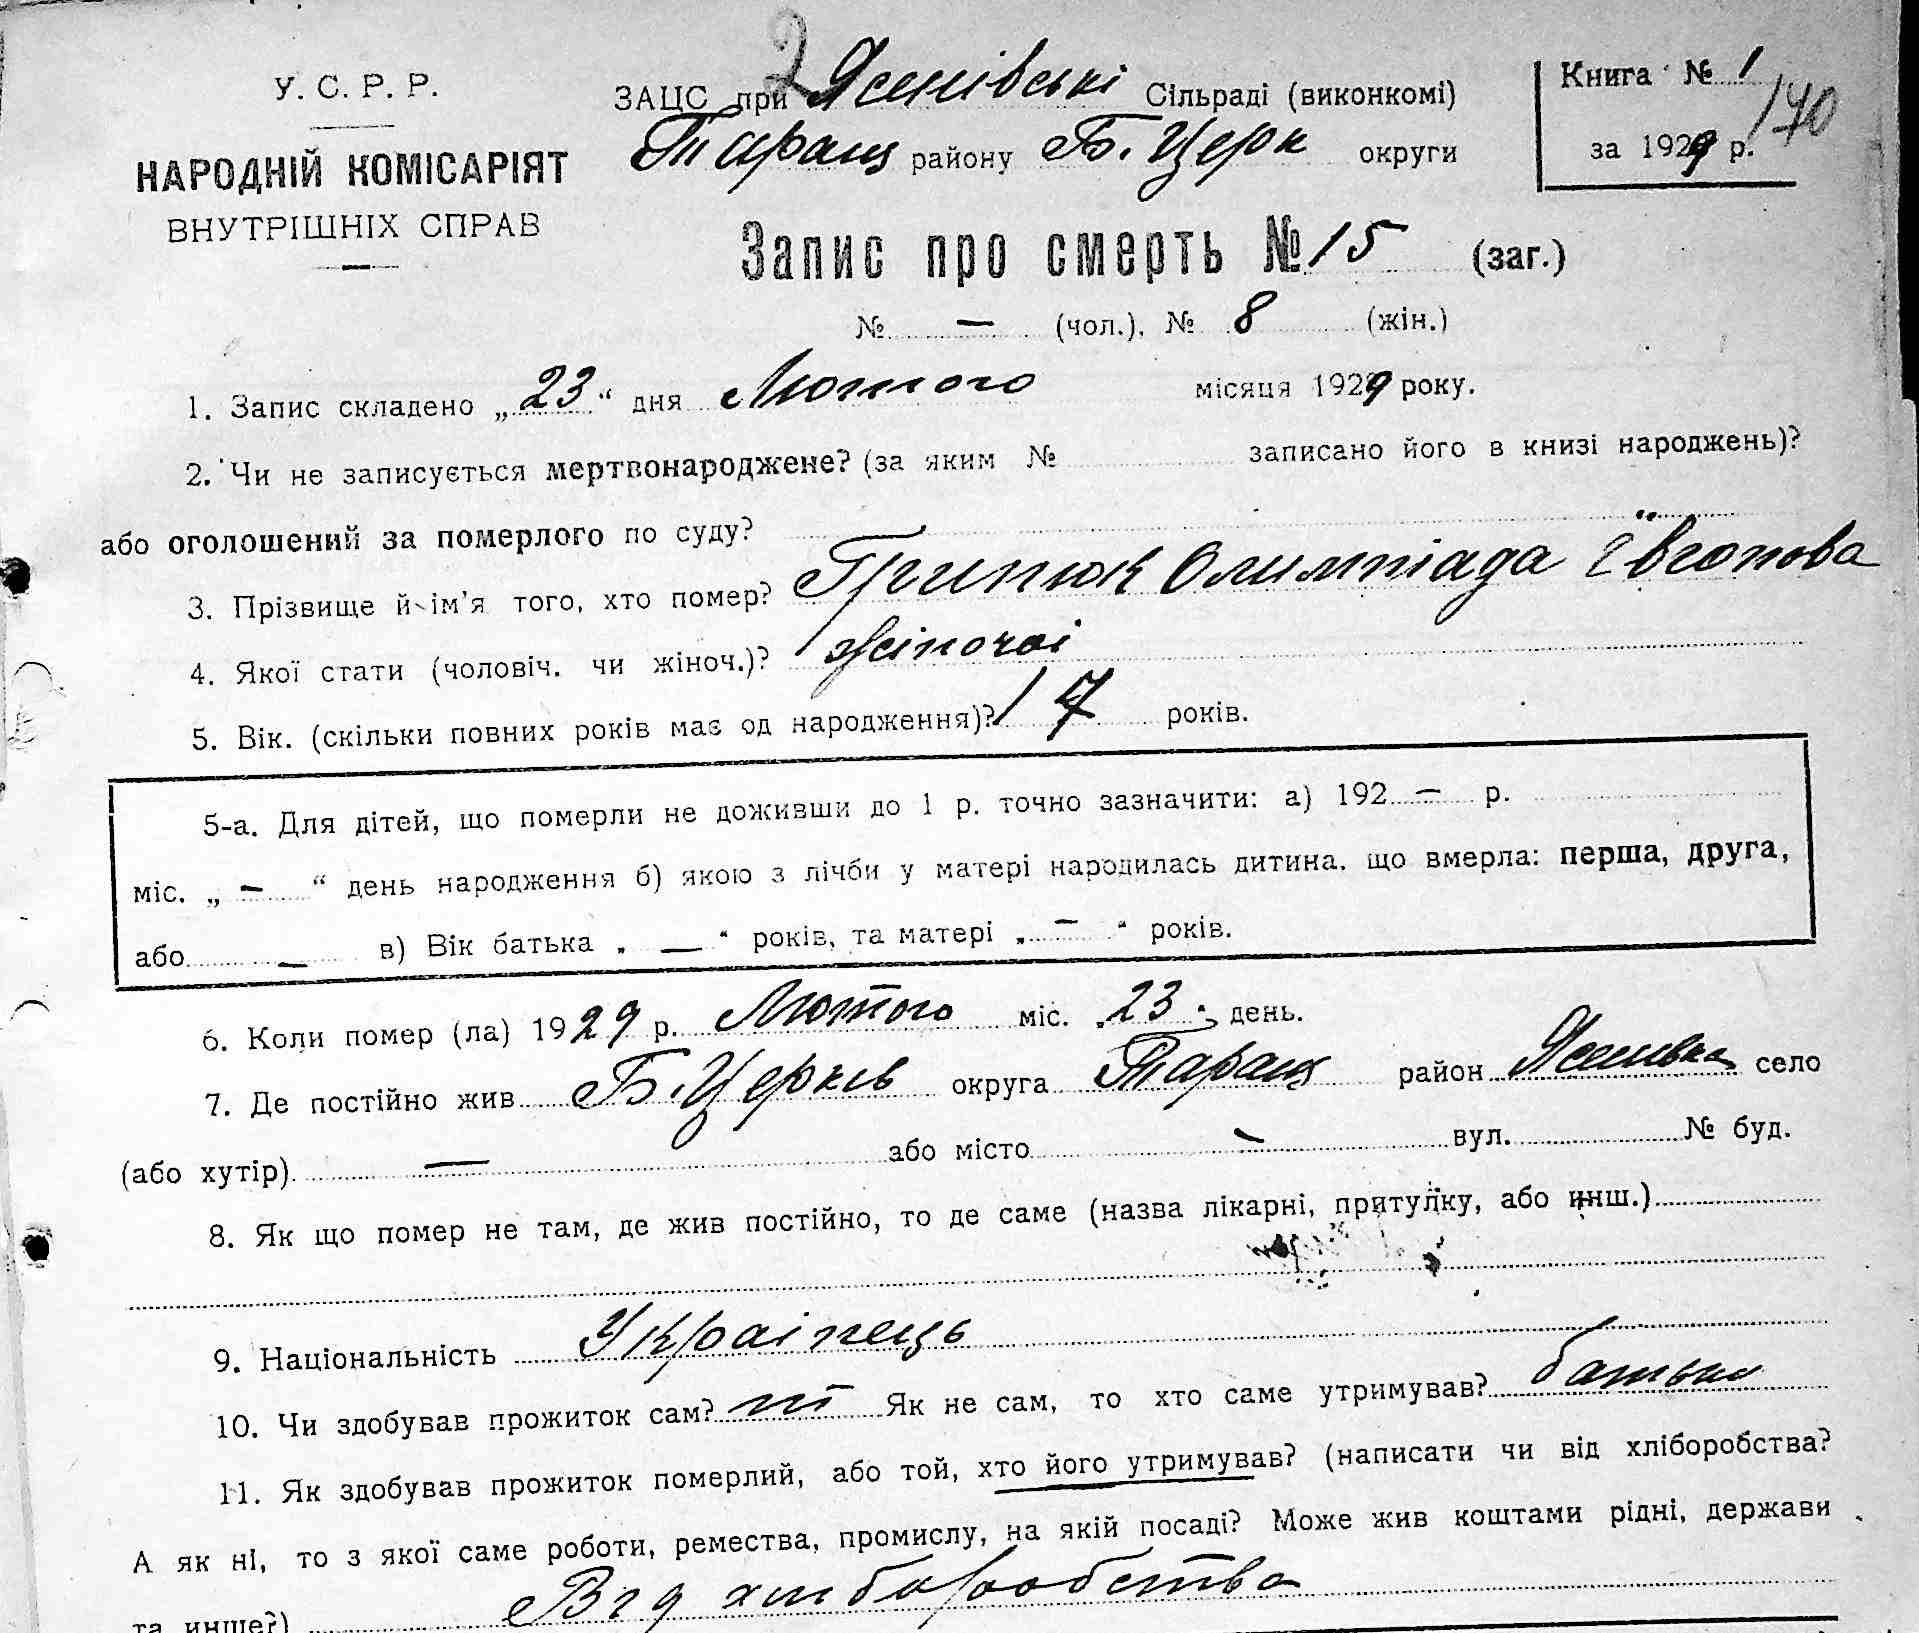 У. С. Р. Р.
НАРОДНІЙ КОМІСАРІЯТ
ВНУТРІШНІХ СПРАВ
2
ЗАЦС при Ясенівські Сільраді (виконкомі)
Таращ району Б. Церк округи
Книга № 1
за 1929 р.
170
Запис про смерть № 15 (заг.)
№ — (чол.), № 8 (жін.)
1. Запис складено „23“ дня Лютого місяця 1929 року.
2. Чи не записується мертвонароджене? (за яким № записано його в книзі народжень)?
або оголошений за померлого по суду?
3. Прізвище й ім'я того, хто помер? Грипюк Олимпіада
4. Якої стати (чоловіч. чи жіноч.)? жіночоі
5. Вік. (скільки повних років має од народження)? 17 років.
5-а. Для дітей, що померли не доживши до 1 р. точно зазначити: а) 192 — р.
міс. „ — “ день народження б) якою з лічби у матері народилась дитина, що вмерла: перша, друга,
або — в) Вік батька „ — “ років, та матері „ — “ років.
6. Коли помер (ла) 1929 р. Лютого міс. „23“ день.
7. Де постійно жив Б. Церків округа Таращ район Ясенівка село
(або хутір) — або місто — вул. № буд.
8. Як що помер не там, де жив постійно, то де саме (назва лікарні, притулку, або инш.)
9. Національність Українець
10. Чи здобував прожиток сам? ні Як не сам, то хто саме утримував? батько
11. Як здобував прожиток померлий, або той, хто його утримував? (написати чи від хліборобства?
А як ні, то з якої саме роботи, ремества, промислу, на якій посаді? Може жив коштами рідні, держави
та инше?) Від хліборобства